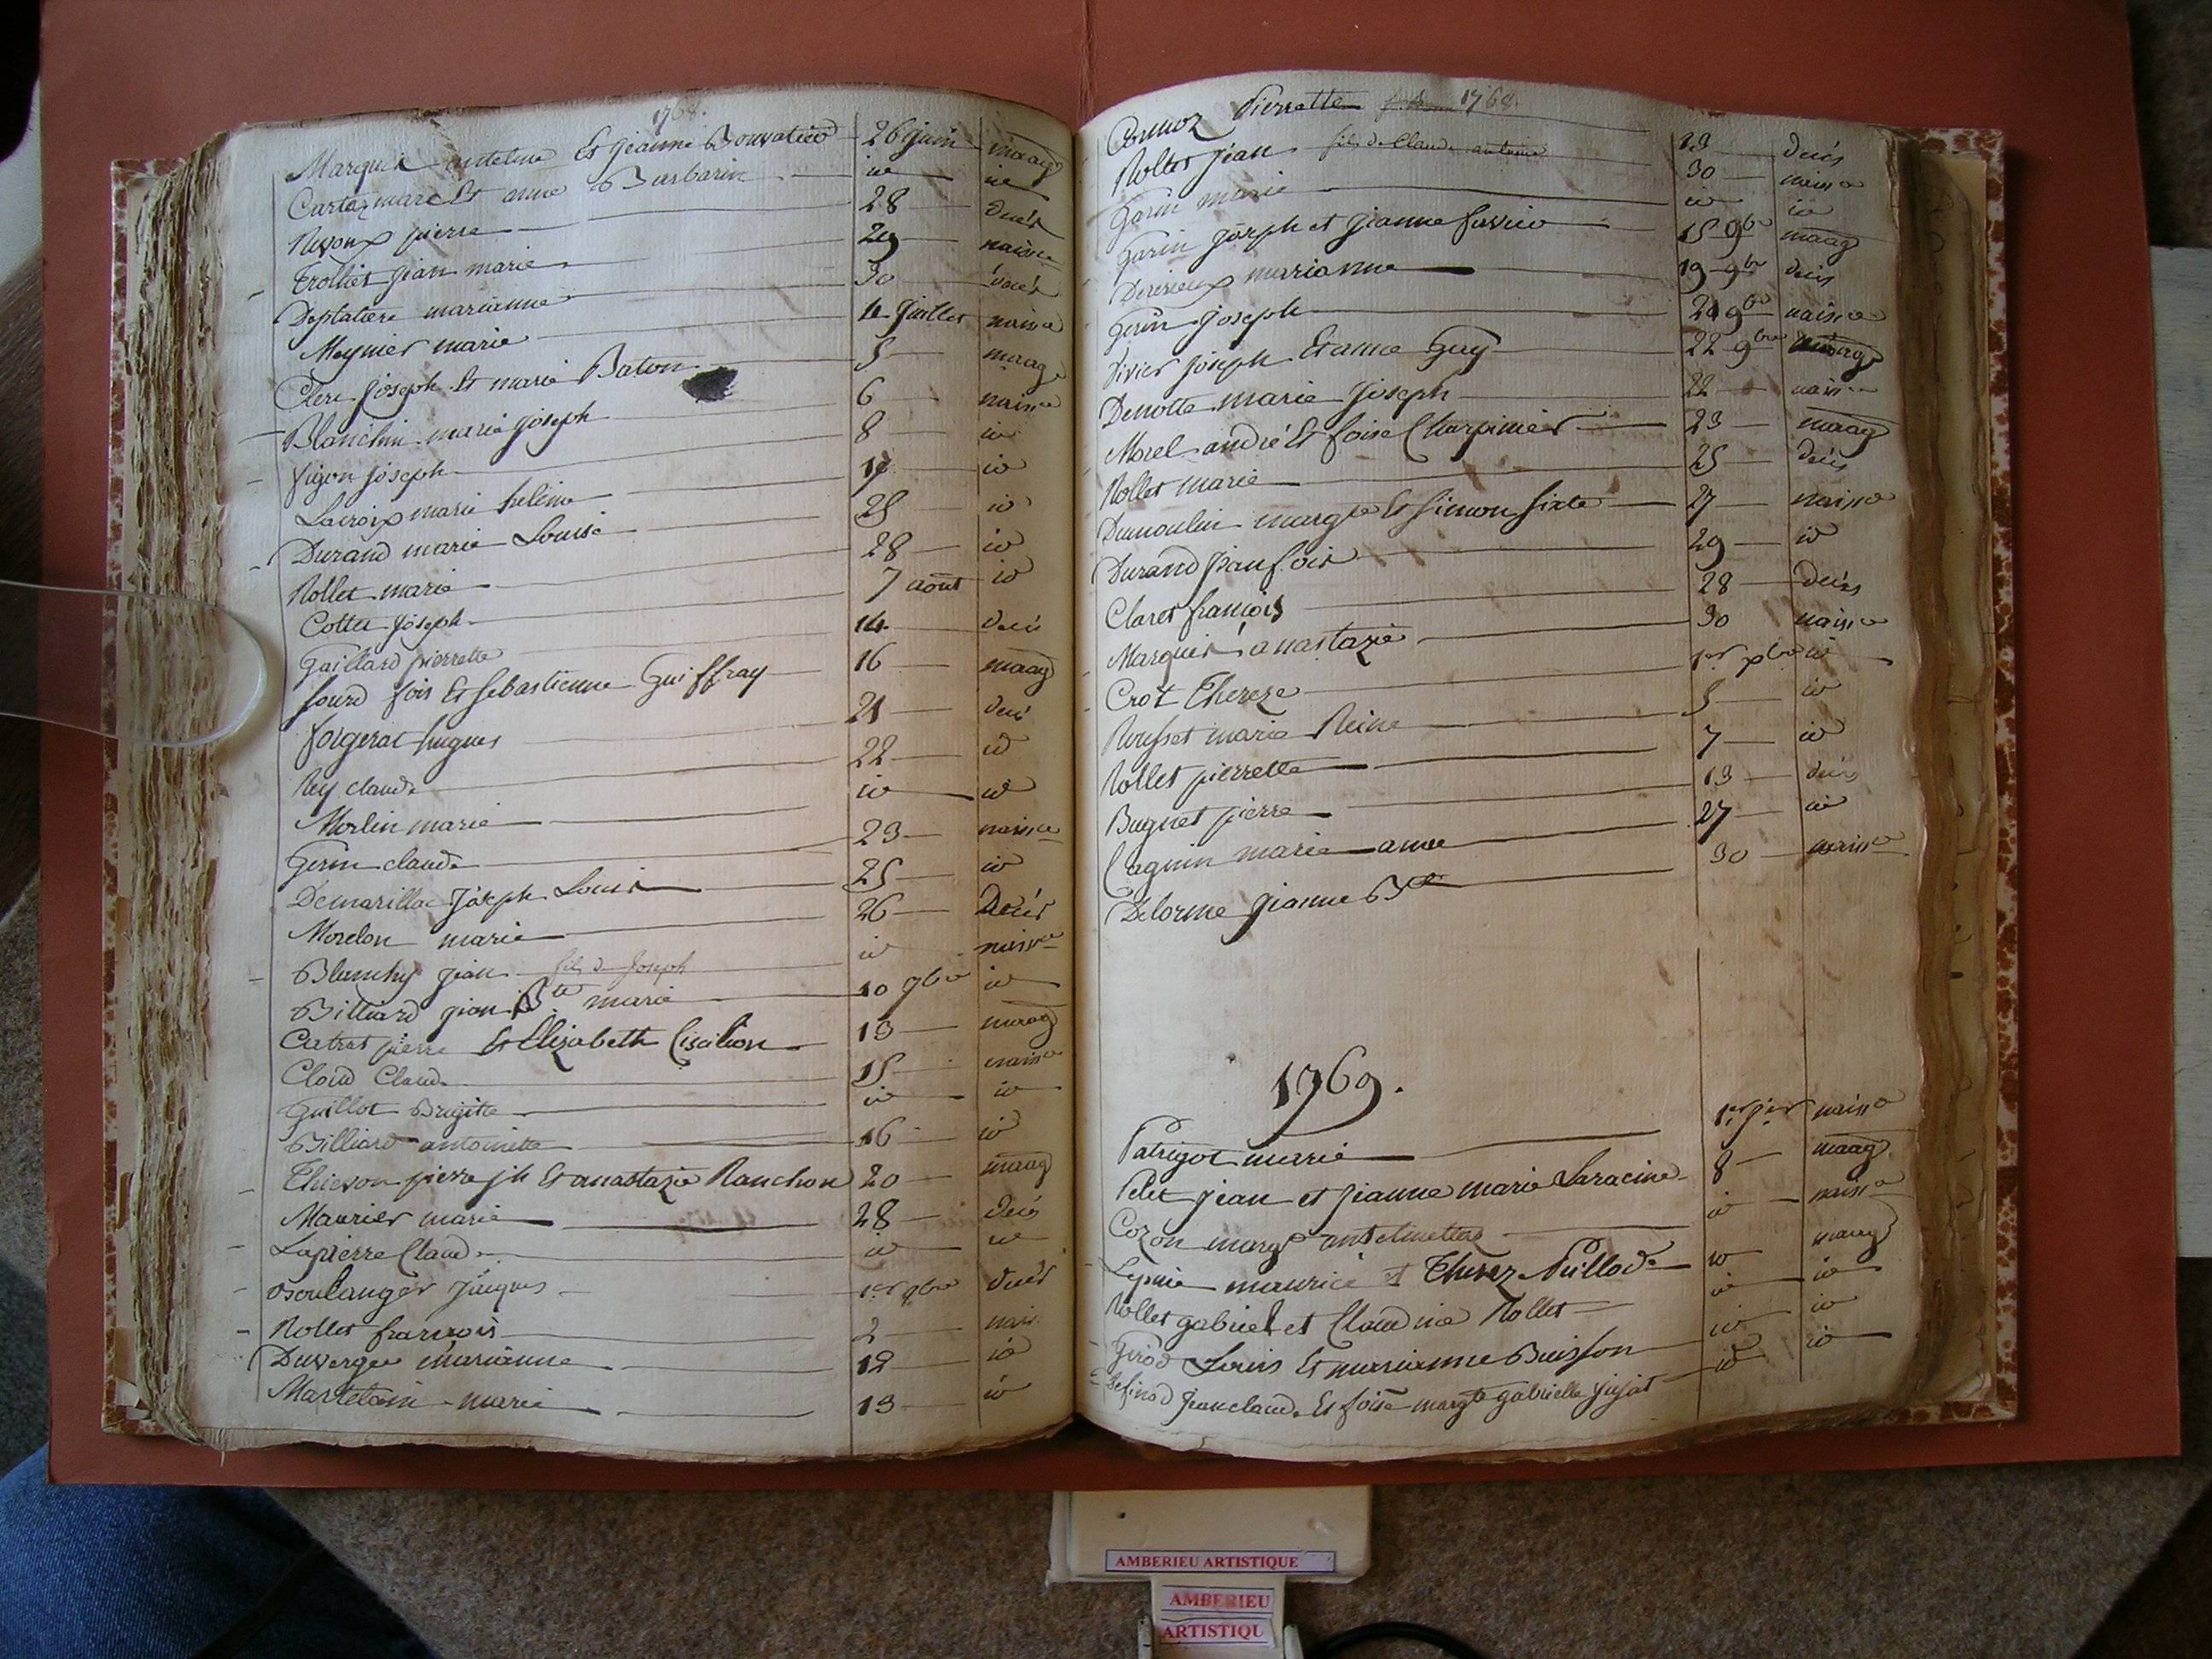 1768.
Marquis antelme Et jeanne Bouvatier 26 juin maag
Cartaz marc Et anne Burbarin id id
Revoux pierre 28 decés
Trolliet jean marie 29 naiss.ce
Deplatiere marianne 30 decés
Meynier marie 4 Juillet naiss.ce
Clerc joseph Et marie Baton 5 maag
Blanchin marie joseph 6 naiss.ce
figon joseph 8 id
Lacroix marie heleine 17 id
Durand marie Louise 25 id
Rollet marie 28 id
Cottet joseph 7 août id
Gaillard pierrette 14 decés
fois Et Sebastienne Guiffray 16 maag
forgerat hugues 21 decés
Rey claude 22 id
Merlin marie id id
Gerin claude 23 naiss.ce
Demarillac joseph Louis 25 id
Morelon marie 26 Decés
Blanchy jean fils de Joseph id naiss.ce
Billiard jean B.te marie 10 7bre id
Catret pierre Et Elizabeth 13 maag
Cloud Claude 15 naiss.ce
Guillot Brigitte id id
Billiard antoinette 16 id
Thievon pierre jh Et anastazie Ranchon 20 maag
Maurier marie 28 Decés
Lapierre Claude id id
Boulanger Jacques 1.er 8bre decés
Rollet francois 2 naiss.
Duverger marianne 12 id
Martelain marie 13 id
Cornoz Pierrette 1768. 23 decés
Rollet jean fils de Claude antoine 30 naiss.ce
Garin marie id id
Garin joseph et jeanne favrier 15 9bre maag
marianne 19 9bre decés
Gerin joseph 20 9bre naiss.ce
Vivier joseph Et anne Guy 22 9bre maag
Denotte marie joseph 22 naiss.ce
Morel andré Et foise Charpinier 23 maag
Rollet marie 25 decés
Dumoulin margte Et Simon Sixte 27 naiss.ce
Durand jean fois 29 id
Claret françois 28 Decés
Marquis anastazie 30 naiss.ce
Crot Thereze 1.er xbre id
Rousset marie Reine 5 id
Rollet pierrette 7 id
Bugnet pierre 13 decés
Cagnin marie anne 27 id
Delorme jeanne B.te 30 naiss.ce
1769.
Patrigot marie 1.er j.er naiss.ce
Pelet jean et jeanne marie Saracine 8 maag
Cozon marg.te antelmette id naiss.ce
maurice et Therez Puillod id maag
Rollet gabriel et Claudine Rollet id id
Girod Louis Et marianne Buisson id id
jean claude Et foise margte gabrielle jujat id id
AMBERIEU ARTISTIQUE
AMBERIEU
ARTISTIQU